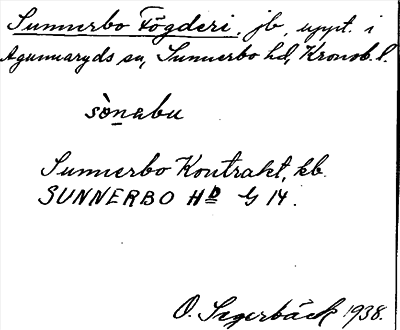 Sunnerbo Fögderi, jb, uppt. i
Agunnaryds sn, Sunnerbo hd, Kronob. l.
sònabu
Sunnerbo Kontrakt, kb.
SUNNERBO HD G 14.
O. Segerbäck 1938.